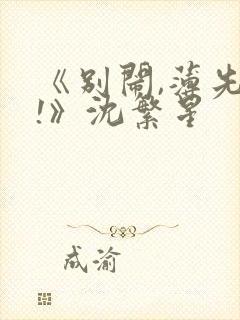 《别闹,薄先
!》沈繁星
成渝